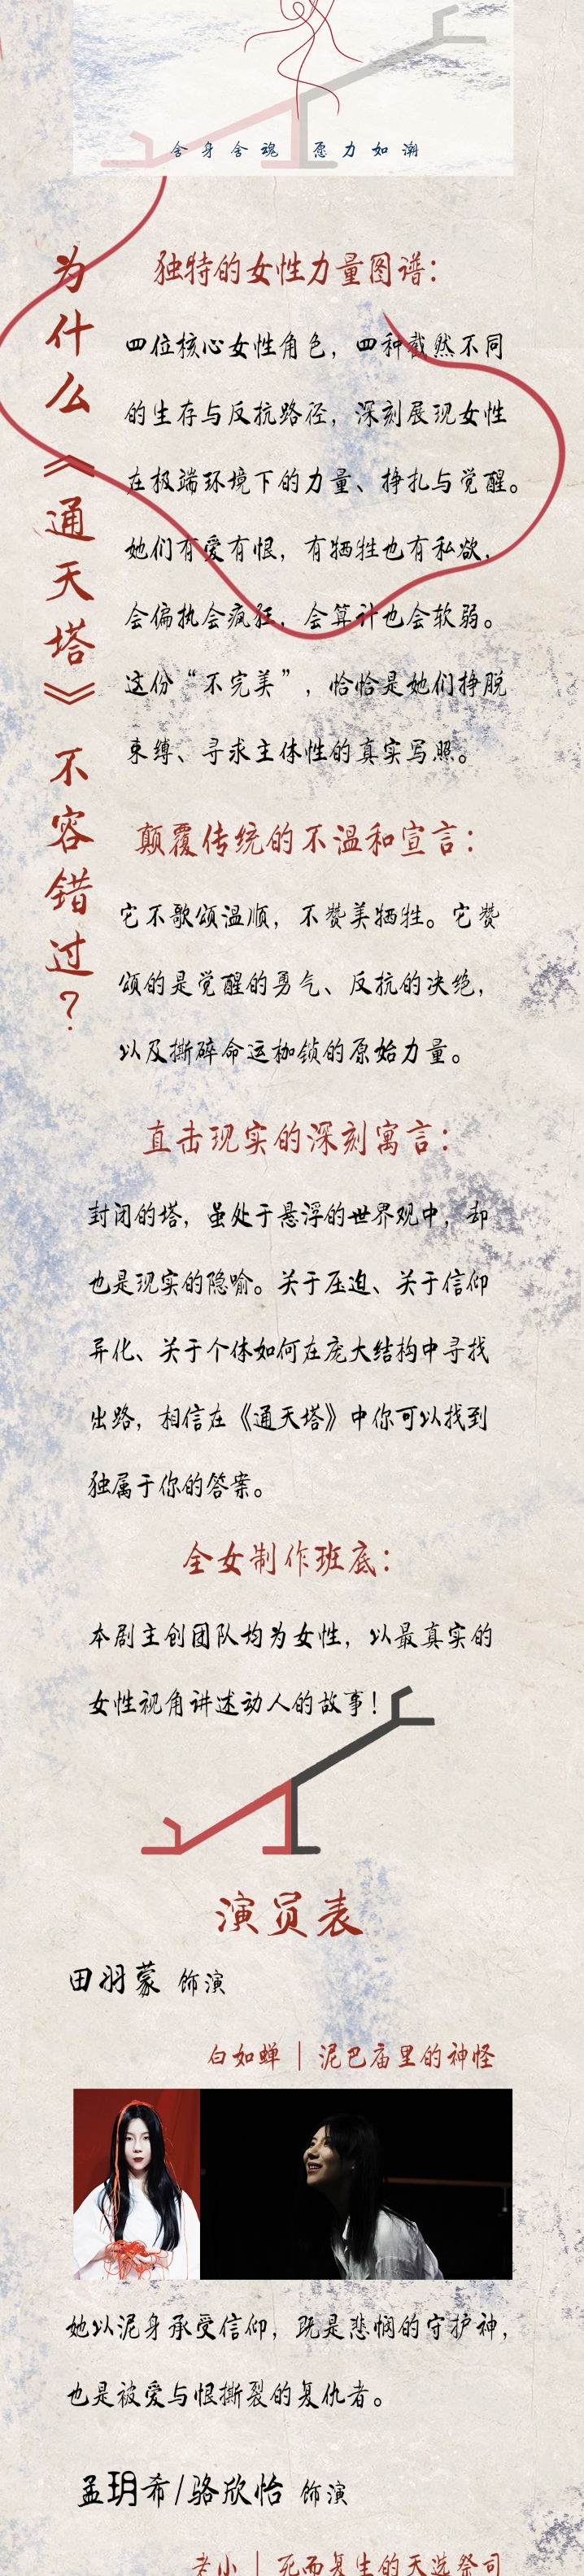 舍身舍魂 愿力如潮
为什么《通天塔》不容错过？
独特的女性力量图谱：
四位核心女性角色，四种截然不同
的生存与反抗路径，深刻展现女性
在极端环境下的力量、挣扎与觉醒。
她们有爱有恨，有牺牲也有私欲，
会偏执会疯狂，会算计也会软弱。
这份“不完美”，恰恰是她们挣脱
束缚、寻求主体性的真实写照。
颠覆传统的不温和宣言：
它不歌颂温顺，不赞美牺牲。它赞
颂的是觉醒的勇气、反抗的决绝，
以及撕碎命运枷锁的原始力量。
直击现实的深刻寓言：
封闭的塔，虽处于悬浮的世界观中，却
也是现实的隐喻。关于压迫、关于信仰
异化、关于个体如何在庞大结构中寻找
出路，相信在《通天塔》中你可以找到
独属于你的答案。
全女制作班底：
本剧主创团队均为女性，以最真实的
女性视角讲述动人的故事！
演员表
田羽蒙 饰演
白如蝉｜泥巴庙里的神怪
她以泥身承受信仰，既是悲悯的守护神，
也是被爱与恨撕裂的复仇者。
孟玥希/骆欣怡 饰演
老小｜死而复生的天选祭司